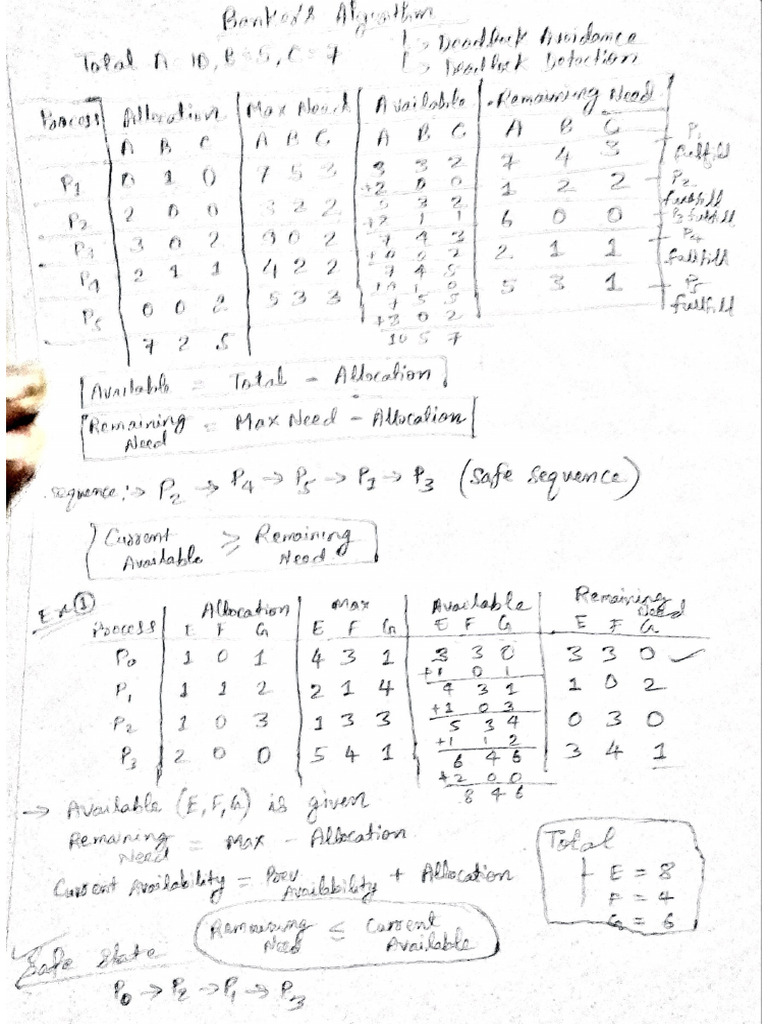 Banker's Algorithm
Total A = 10, B = 5, C = 7
↳ Deadlock Avoidance
↳ Deadlock Detection
Process | Allocation | Max Need | Available | Remaining Need
A B C | A B C | A B C | A B C
P1 | 0 1 0 | 7 5 3 | 3 3 2 | 7 4 3 | P1 fullfill
+2 0 0
P2 | 2 0 0 | 3 2 2 | 5 3 2 | 1 2 2 | P2 fullfill
+2 1 1
P3 | 3 0 2 | 9 0 2 | 7 4 3 | 6 0 0 | P3 fullfill
+0 0 2
P4 | 2 1 1 | 4 2 2 | 7 4 5 | 2 1 1 | P4 fullfill
+0 1 0
P5 | 0 0 2 | 5 3 3 | 7 5 5 | 5 3 1 | P5 fullfill
+3 0 2
7 2 5 | 10 5 7
Available = Total - Allocation
Remaining Need = Max Need - Allocation
sequence :→ P2 → P4 → P5 → P1 → P3 (Safe sequence)
Current Available ≥ Remaining Need
Ex ①
Process | Allocation | Max | Available | Remaining Need
E F G | E F G | E F G | E F G
P0 | 1 0 1 | 4 3 1 | 3 3 0 | 3 3 0 ✓
+1 0 1
P1 | 1 1 2 | 2 1 4 | 4 3 1 | 1 0 2
+1 0 3
P2 | 1 0 3 | 1 3 3 | 5 3 4 | 0 3 0
+1 1 2
P3 | 2 0 0 | 5 4 1 | 6 4 6 | 3 4 1
+2 0 0
8 4 6
→ Available (E, F, G) is given
Remaining Need = Max - Allocation
Current Availability = Prev. Availability + Allocation
Total
E = 8
F = 4
G = 6
Remaining Need ≤ Current Available
Safe state
P0 → P2 → P1 → P3